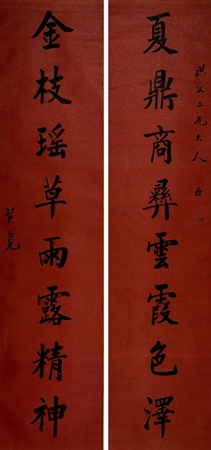 夏鼎商彝雲霞色澤
金枝瑶草雨露精神